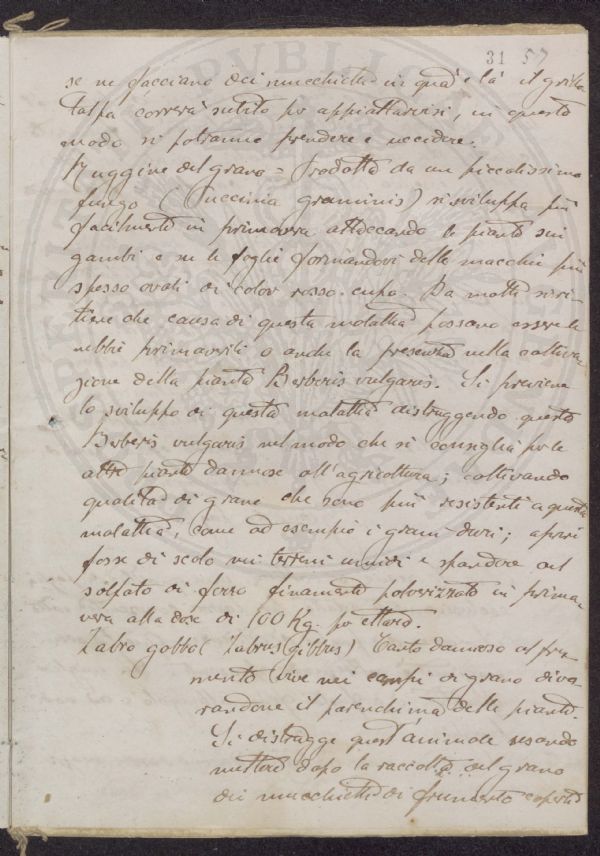 31 57
se ne facciano dei mucchietti in quà e là il grillo
talpa correrà subito per appiattarvisi, in questo
modo si potranno prendere e uccidere.
Ruggine del grano = Prodotta da un piccolissimo
fungo (Puccinia graminis) si sviluppa più
facilmente in primavera attaccando le piante sui
gambi e su le foglie formandovi delle macchie più
spesso ovali di color rosso-cupo. Da molti si ri-
tiene che causa di questa malattia possano essere le
nebbie primaverili o anche la presenza nella coltiva-
zione della pianta Berberis vulgaris. Si previene
lo sviluppo di questa malattia distruggendo questo
Berberis vulgaris nel modo che si consiglia per le
altre piante dannose all'agricoltura; coltivando
qualità di grano che sono più resistenti a questa
malattia, come ad esempio i grani duri; aprire
fosse di scolo nei terreni umidi e spandere del
solfato di ferro finamente polverizzato in prima-
vera alla dose di 100 Kg. per ettaro.
Zabro gobbo (Zabrus gibbus) Tanto dannoso al fru-
mento vive nei campi di grano divo-
randone il parenchima delle piante.
Si distrugge quest'animale
mettere dopo la raccolta del grano
dei mucchietti di frumento coperti